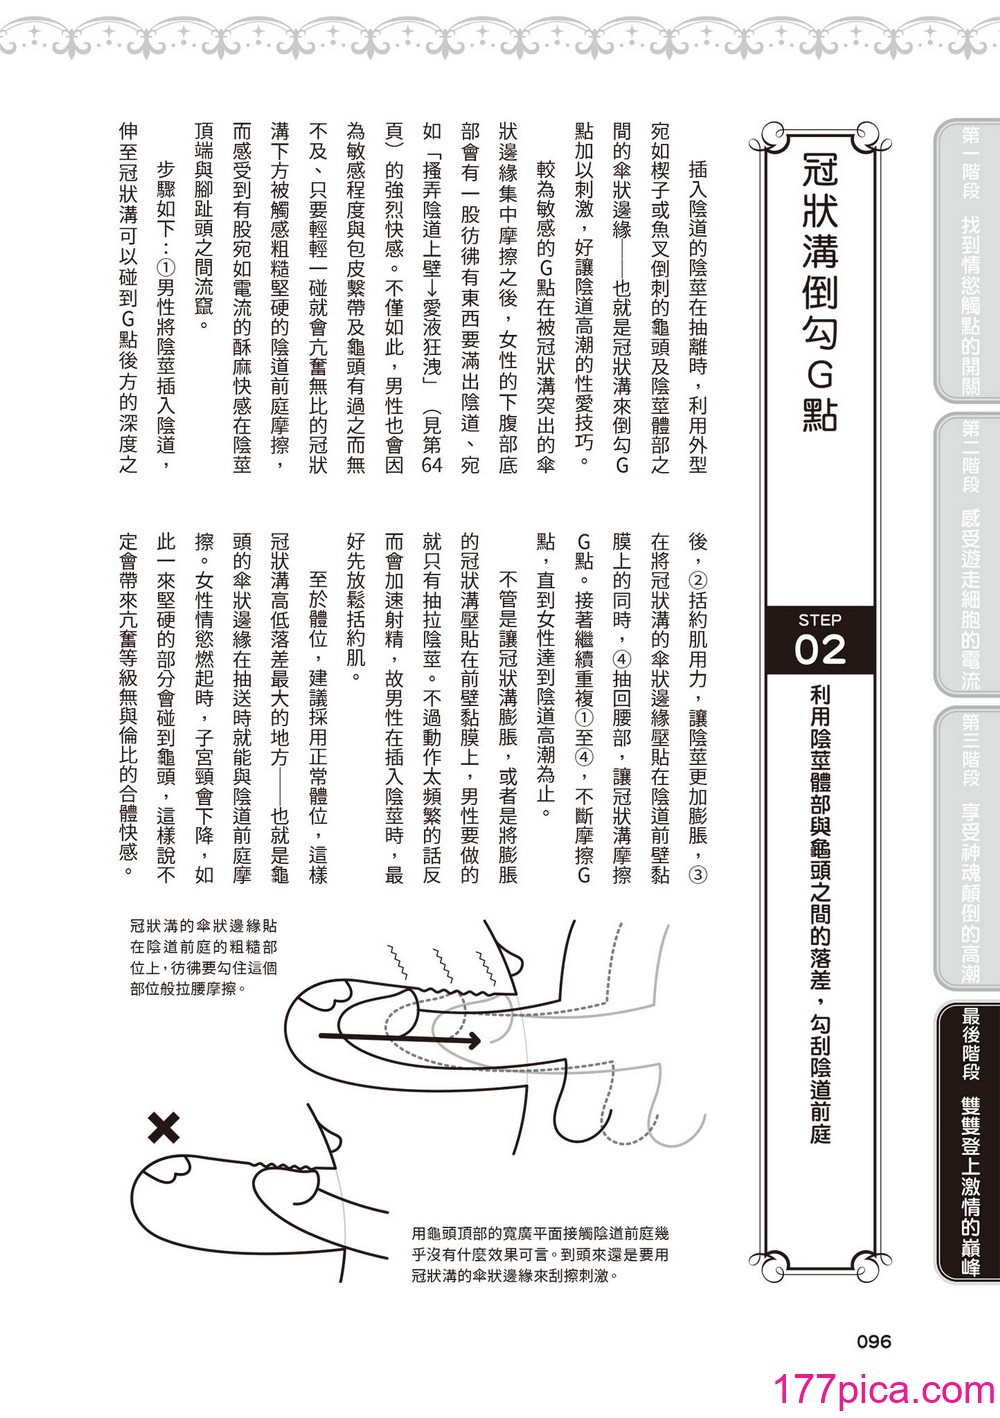 第一階段　找到情慾觸點的開關
第二階段　感受遊走細胞的電流
第三階段　享受神魂顛倒的高潮
最後階段　雙雙登上激情的巔峰
冠狀溝倒勾G點
STEP
02
利用陰莖體部與龜頭之間的落差，勾刮陰道前庭
插入陰道的陰莖在抽離時，利用外型
宛如楔子或魚叉倒刺的龜頭及陰莖體部之
間的傘狀邊緣──也就是冠狀溝來倒勾G
點加以刺激，好讓陰道高潮的性愛技巧。
較為敏感的G點在被冠狀溝突出的傘
狀邊緣集中摩擦之後，女性的下腹部底
部會有一股彷彿有東西要滿出陰道、宛
如「搔弄陰道上壁→愛液狂洩」（見第64
頁）的強烈快感。不僅如此，男性也會因
為敏感程度與包皮繫帶及龜頭有過之而無
不及、只要輕輕一碰就會亢奮無比的冠狀
溝下方被觸感粗糙堅硬的陰道前庭摩擦，
而感受到有股宛如電流的酥麻快感在陰莖
頂端與腳趾頭之間流竄。
步驟如下：①男性將陰莖插入陰道，
伸至冠狀溝可以碰到G點後方的深度之
後，②括約肌用力，讓陰莖更加膨脹，③
在將冠狀溝的傘狀邊緣壓貼在陰道前壁黏
膜上的同時，④抽回腰部，讓冠狀溝摩擦
G點。接著繼續重複①至④，不斷摩擦G
點，直到女性達到陰道高潮為止。
不管是讓冠狀溝膨脹，或者是將膨脹
的冠狀溝壓貼在前壁黏膜上，男性要做的
就只有抽拉陰莖。不過動作太頻繁的話反
而會加速射精，故男性在插入陰莖時，最
好先放鬆括約肌。
至於體位，建議採用正常體位，這樣
冠狀溝高低落差最大的地方──也就是龜
頭的傘狀邊緣在抽送時就能與陰道前庭摩
擦。女性情慾燃起時，子宮頸會下降，如
此一來堅硬的部分會碰到龜頭，這樣說不
定會帶來亢奮等級無與倫比的合體快感。
冠狀溝的傘狀邊緣貼
在陰道前庭的粗糙部
位上，彷彿要勾住這個
部位般拉腰摩擦。
用龜頭頂部的寬廣平面接觸陰道前庭幾
乎沒有什麼效果可言。到頭來還是要用
冠狀溝的傘狀邊緣來刮擦刺激。
096
177pica.com